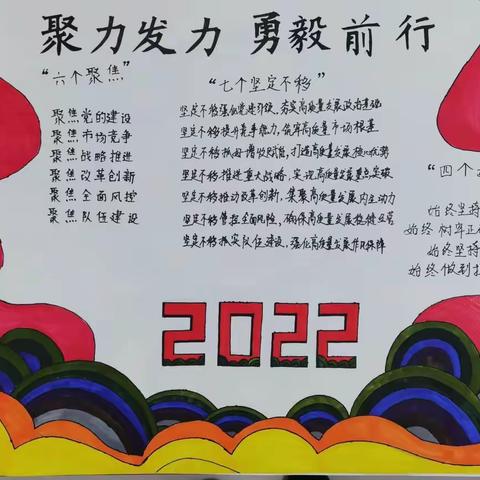 聚力发力 勇毅前行
“六个聚焦”
聚焦党的建设
聚焦市场竞争
聚焦战略推进
聚焦改革创新
聚焦全面风控
聚焦队伍建设
“七个坚定不移”
坚定不移强化党建引领，夯实高质量发展政治基础
坚定不移提升竞争能力，筑牢高质量市场根基
坚定不移拓增收赋能，打造高质量发展核心优势
坚定不移推进重大战略，实现高质量发展重点突破
坚定不移推动改革创新，集聚高质量发展内生动力
坚定不移管控全面风险，确保高质量发展稳健运营
坚定不移抓实队伍建设，强化高质量发展作风保障
“四个
始终坚持
始终树牢正
始终坚持
始终做到
2022